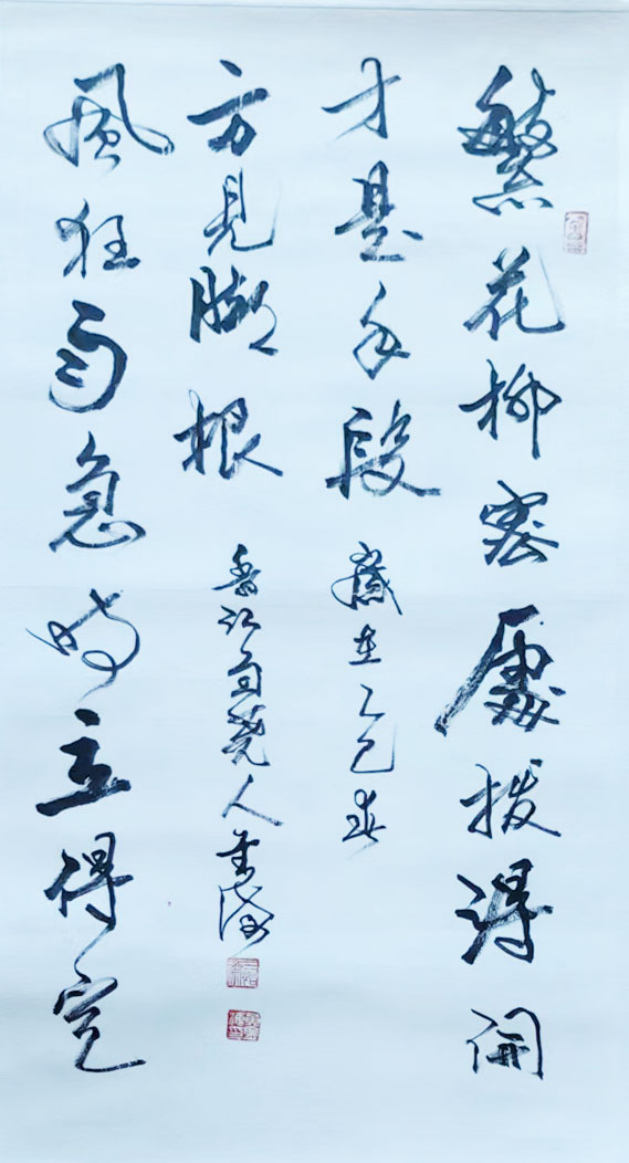 繁花柳密處撥得開
才是手段
風狂雨急時立得定
方見腳根
歲在乙巳春
香江 人書